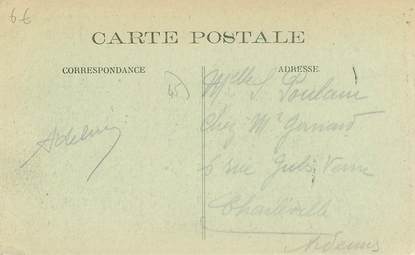 6€
CARTE POSTALE
CORRESPONDANCE
ADRESSE
45
Melle S Poulain
Chez Mr
6 rue Jules Verne
Charleville
Ardennes